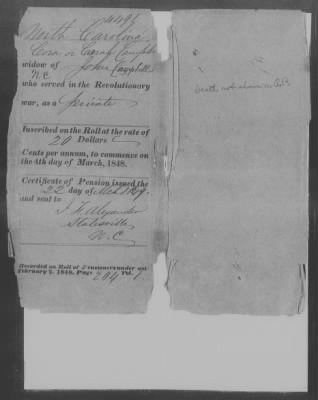 4496
North Carolina
Cora or Campbell
widow of John Campbell
N C
who served in the Revolutionary
war, as a Private
Inscribed on the Roll at the rate of
20 Dollars
Cents per annum, to commence on
the 4th day of March, 1848.
Certificate of Pension issued the
22 day of
and sent to
J. H. Alexander
Statesville
N. C.
Recorded on Roll of Pensioners under act
February 2, 1848, Page 204 Vol. 1
Death not shown